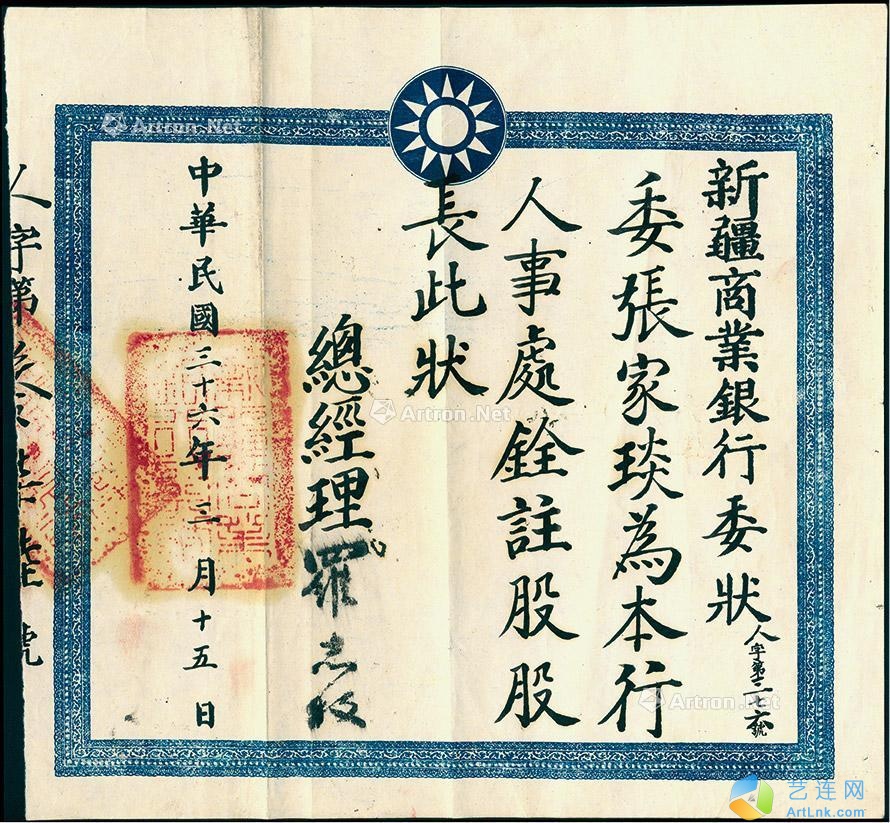 新疆商業銀行委狀
人字第三七六號
委張家琰為本行
人事處銓註股股
長此狀
總經理羅志枚
中華民國三十六年三月十五日
人字第叁 柒陸號
Artron.Net
Artron.Net
Artron.Net
艺连网
ArtLnk.com